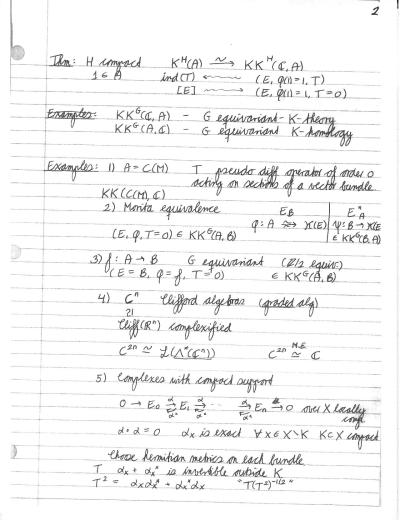 2
Thm: H compact K^H(A) ⥲ KK^H(ℂ, A)
1 ∈ A ind(T) ⟵ (E, φ(1)=1, T)
[E] ⟶ (E, φ(1)=1, T=0)
Examples: KK^G(ℂ, A) - G equivariant - K-theory
KK^G(A, ℂ) - G equivariant K-homology
Examples: 1) A = C(M) T pseudo diff operator of order 0
acting on sections of a vector bundle
KK(C(M), ℂ)
2) Morita equivalence E_B E*_A
φ: A ⥲ K(E) ψ: B → K(E)
(E, φ, T=0) ∈ KK^G(A, B) ∈ KK^G(B, A)
3) f: A → B G equivariant (ℤ/2 equiv.)
(E = B, φ = f, T = 0) ∈ KK^G(A, B)
4) C^n Clifford algebras (graded alg)
≀∥
Cliff(ℝ^n) complexified
C^{2n} ≅ L(Λ*(ℂ^n)) C^{2n} M.E. ≃ ℂ
5) Complexes with compact support
0 → E_0 α ⇄ α* E_1 α ⇄ α* α ⇄ α* E_n → 0 over X locally
comp
α∘α = 0 α_x is exact ∀x∈X∖K K⊂X compact
Choose hermitian metrics on each bundle
T α_x + α_x* is invertible outside K
T² = α_xα_x* + α_x*α_x "T(T²)^{-1/2}"